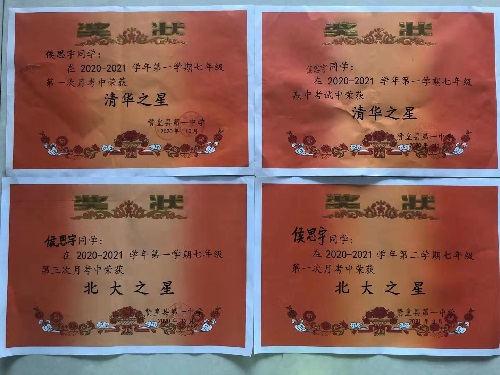 奖状
侯思宇同学：
在 2020-2021 学年第一学期七年级
第一次月考中荣获
清华之星
县第一中学
奖状
同学：
在 2020-2021 学年第一学期七年级
期中考试中荣获
清华之星
县第一中学
奖状
侯思宇同学：
在 2020-2021 学年第一学期七年级
第三次月考中荣获
北大之星
县第一中学
奖状
侯思宇同学：
在 2020-2021 学年第二学期七年级
第一次月考中荣获
北大之星
县第一中学